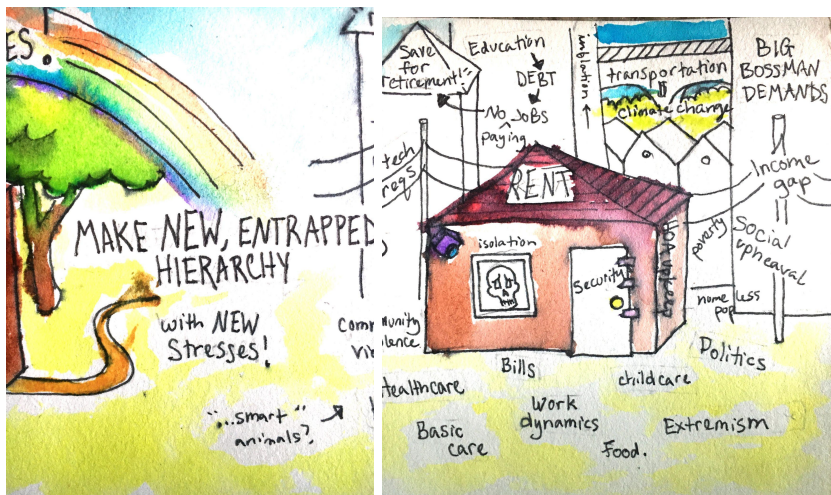 ES.
MAKE NEW, ENTRAPPED
HIERARCHY
with NEW
Stresses!
comm
vi
"...smart"
animals?
Save
for
retirement!"
Education
DEBT
No JoBS
paying
inflation
transportation
climate change
BIG
BOSSMAN
DEMANDS
tech
reqs
RENT
Income
gap
isolation
Security
HOA
poverty
Social
upheaval
homeless
pop
munity
lence
Bills
Politics
healthcare
childcare
Work
dynamics
Basic
care
Extremism
Food.